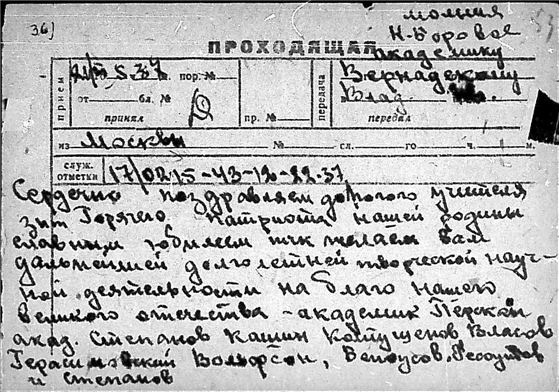 36)
молния
Н-Боровое
ПРОХОДЯЩАЯ
академику
Вернадскому
Влад.
прием
пор. №
от бл. №
принял
пр. №
передача
передал
из Москвы № сл. го ч. м
служ. отметки 17/0215-43-12-22-37
Сердечно поздравляем дорогого учителя
зпт Горячего патриота нашей родины
славным юбилеем тчк желаем вам
дальнейшей долголетней творческой науч-
ной деятельности на благо нашего
великого отечества - академик
акад. Степанов Кашин Власов
Герасимовский Вольфсон, Белоусов,
и Степанов